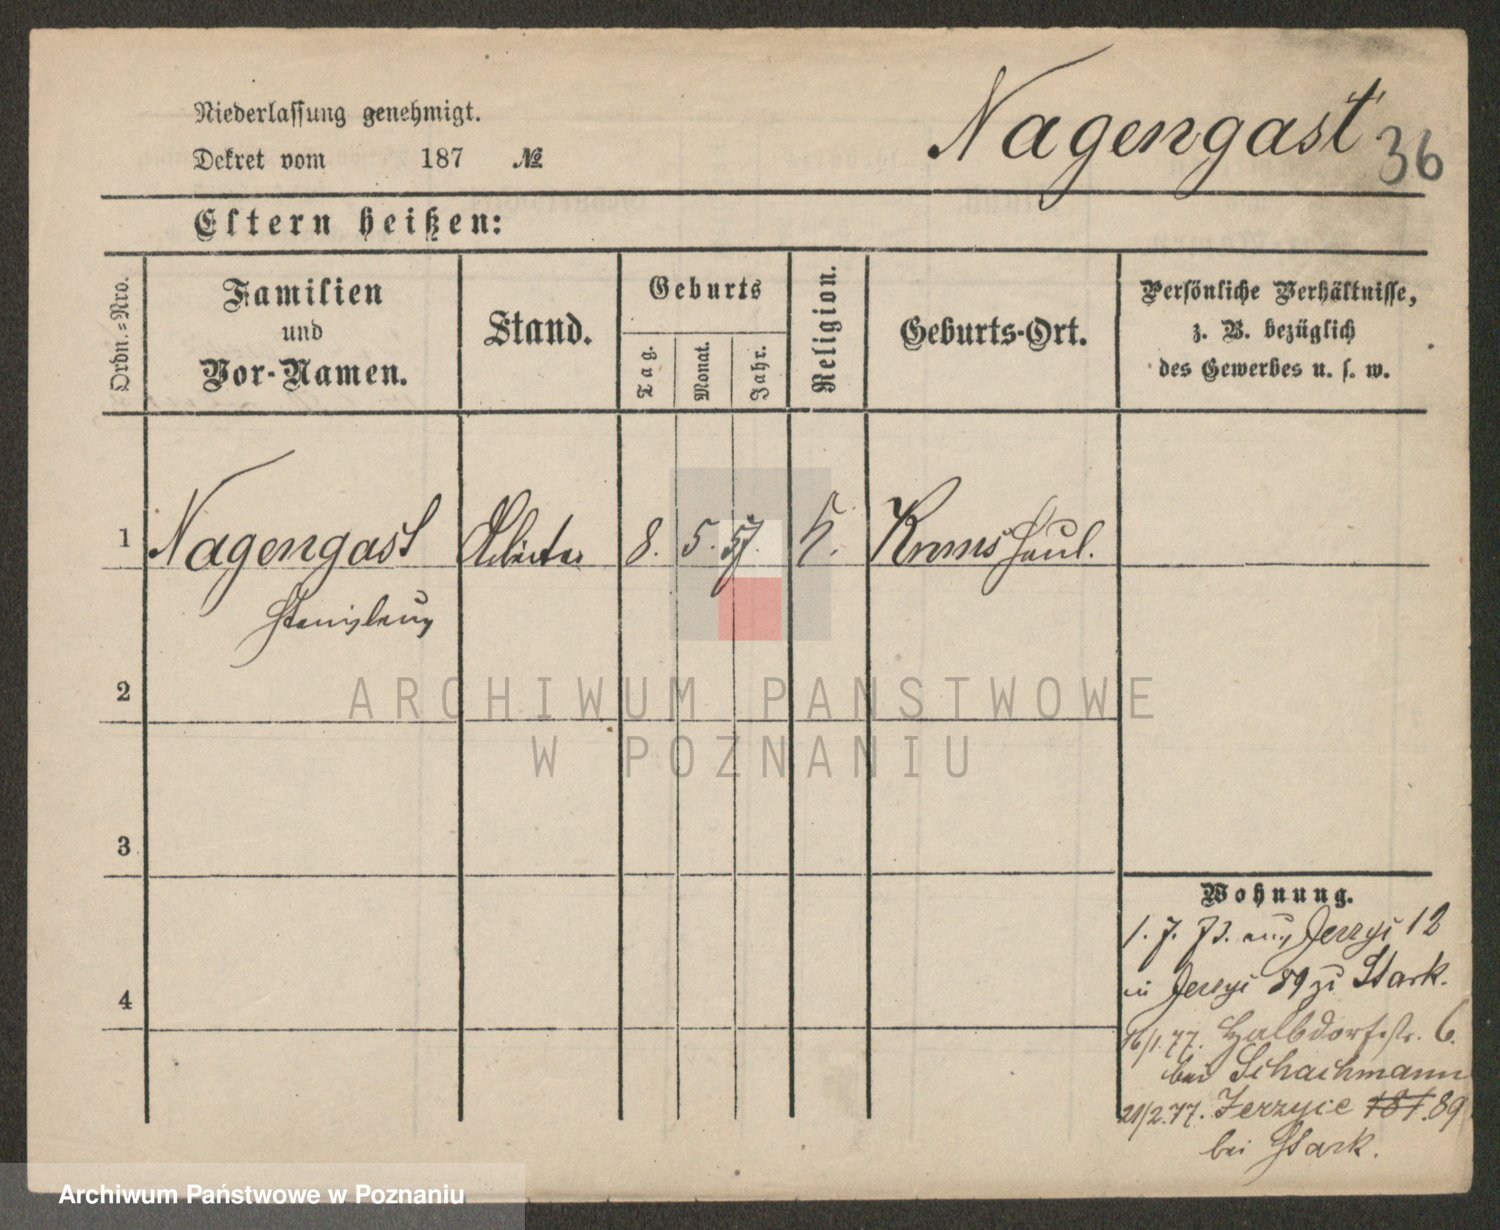 Niederlassung genehmigt.
Dekret vom 187 №
Nagengast
36
Eltern heißen:
Ordn.-Nro.
Familien
und
Vor-Namen.
Stand.
Geburts
Tag.
Monat.
Jahr.
Religion.
Geburts-Ort.
Persönliche Verhältnisse,
z. B. bezüglich
des Gewerbes u. s. w.
1 Nagengast Arbeiter 8. 5. 57. K.
Stanislaus
2
3
4
ARCHIWUM PAŃSTWOWE
W POZNANIU
Wohnung.
1. 7. 73. aus Jerzyi 12
in Jerzyi 89 zu Stark.
16/1. 77. Halbdorfstr. 6.
bei Schachmann
21/2. 77. Jerzyce 181. 89
bei Stark.
Archiwum Państwowe w Poznaniu